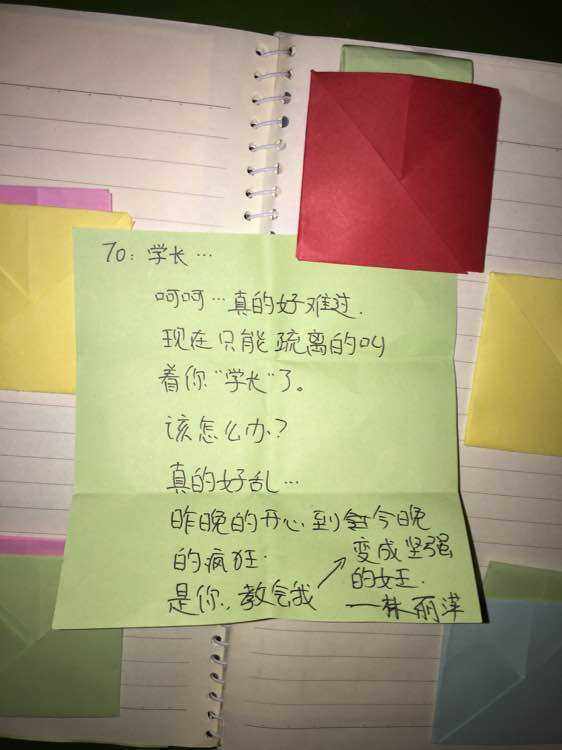 TO: 学长…
呵呵…真的好难过.
现在只能疏离的叫
着你“学长”了。
该怎么办?
真的好乱…
昨晚的开心到今晚
的疯狂.
是你,教会我
变成坚强
的女王.
——林丽萍